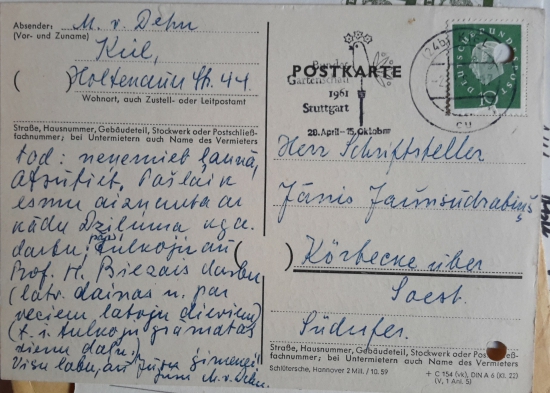 Absender: M. v. Dehn
(Vor- und Zuname)
Kiel,
Holtenauer Str. 44
Wohnort, auch Zustell- oder Leitpostamt
Straße, Hausnummer, Gebäudeteil, Stockwerk oder Postschließ-
fachnummer; bei Untermietern auch Name des Vermieters
tad: neņemiet ļaunā,
atbildiet. Pašlaik
esmu aizņemta ar
kādu Dziļuma
darbu;
Prof. H. Biezais darbu
(latv. dainas u. par
veciem latvju dieviem)
(t. i. tulkoju grāmatas
vienu daļu).
Visu labu, arī Jūsu ģimenei
Jūsu M. v. Dehn.
POSTKARTE
Bundes
Gartenschau
1961
Stuttgart
28. April - 15. Oktober
DEUTSCHE BUNDESPOST
10
Herrn Schriftsteller
Jānis Jaunsudrabiņš
Körbecke über
Soest.
Südufer.
Straße, Hausnummer, Gebäudeteil, Stockwerk oder Postschließ-
fachnummer; bei Untermietern auch Name des Vermieters
Schlütersche, Hannover 2 Mill. / 10. 59
+ C 154 (vk), DIN A 6 (Kl. 22)
(V, 1 Anl. 5)